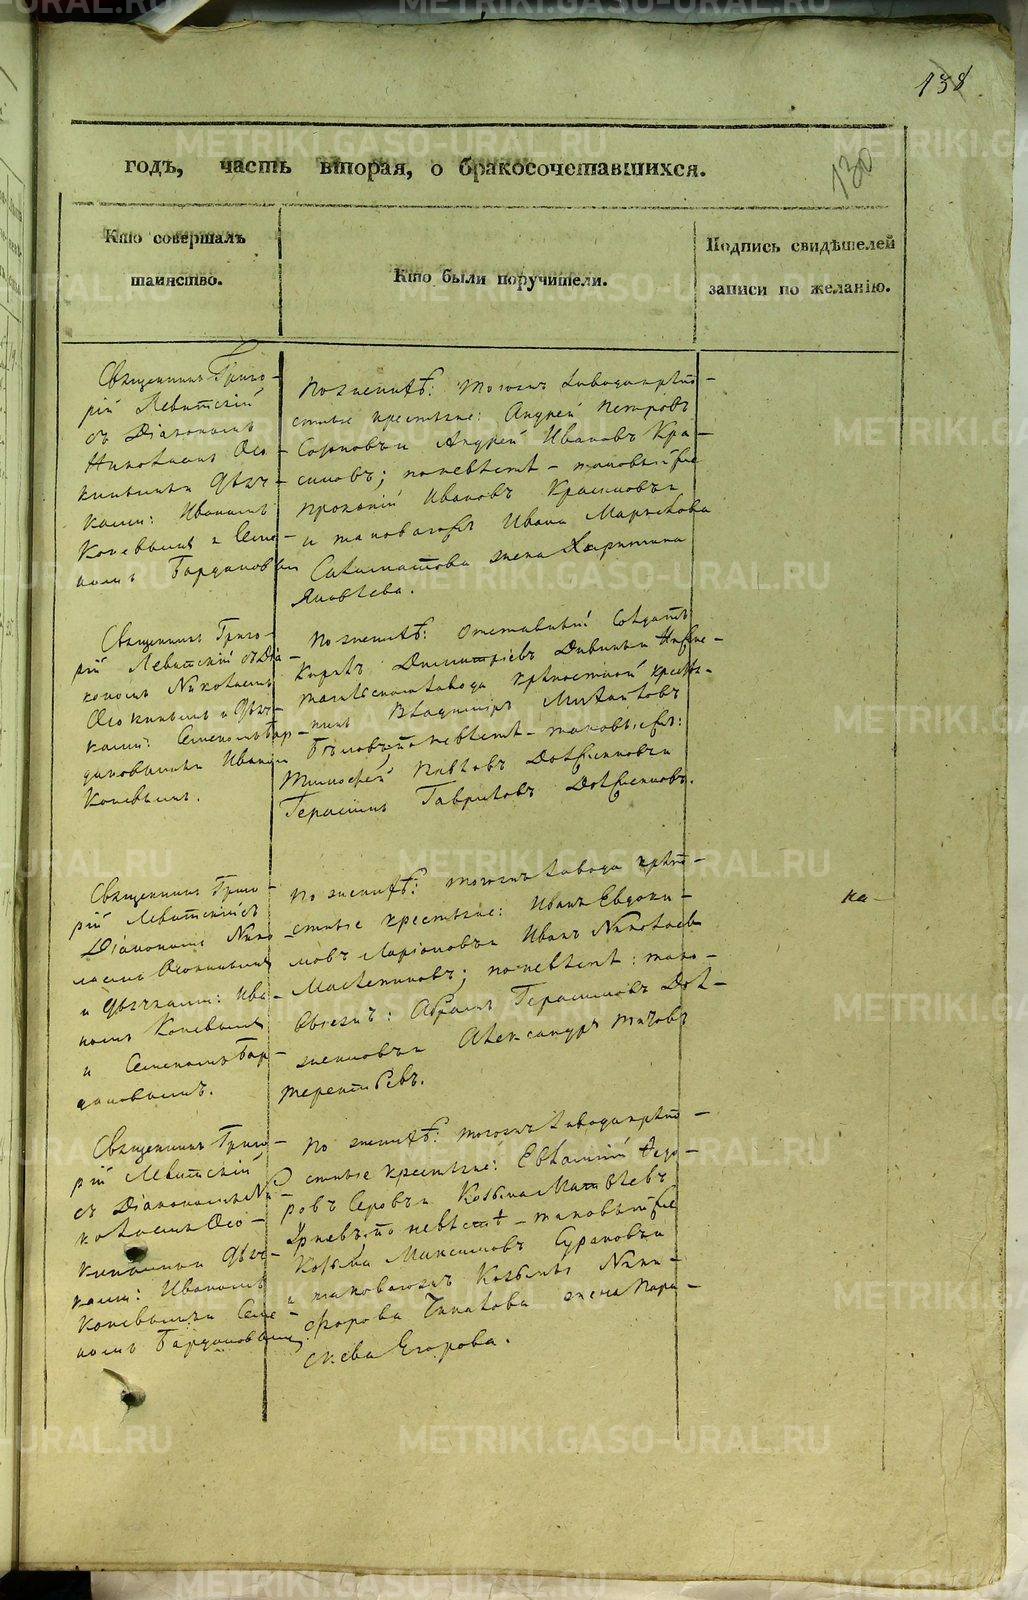 138
130
годъ, часть вторая, о бракосочетавшихся.
Кто совершалъ
таинство.
Кто были поручители.
Подпись свидѣтелей
записи по желанію.
Священникъ Григо-
рій Левитскій
съ Діакономъ
Николаемъ Осо-
кинымъ и Дьяч-
ками: Иваномъ
Коневымъ и Семе-
номъ Бардановымъ
По женихѣ: тогожъ завода крѣпо-
стные крестьяне: Андрей Петровъ
Созоновъ и Андрей Ивановъ Кра-
симовъ; по невѣстѣ – таковый же
Прокопій Ивановъ Красиловъ и
и таковагожъ Ивана Маркелова
жена Харитина
Яковлева.
Священникъ Григо-
рій Левитскій съ Діа-
кономъ Николаемъ
Осокинымъ и Дьяч-
ками: Семеномъ Бар-
дановымъ и Иваномъ
Коневымъ.
По женихѣ: отставный Солдатъ
Карпъ Димитріевъ
завода крѣпостной крестья-
нинъ Владимiръ Михайловъ
по невѣстѣ – таковые же:
Тимофей Павловъ Долженковъ и
Герасимъ Гавриловъ Долженковъ.
Священникъ Григо-
рій Левитскій съ
Діакономъ Нико-
лаемъ Осокинымъ
и Дьячками: Ива-
номъ Коневымъ
и Семеномъ Бар-
дановымъ.
По женихѣ: тогожъ завода крѣпо-
стные крестьяне: Иванъ Евдоки-
мовъ Ларіоновъ и Иванъ Николаевъ
Масленниковъ; по невѣстѣ: тако-
выежъ: Абрамъ Герасимовъ Дол-
женковъ и Александръ Титовъ
Терентьевъ.
ка-
Священникъ Григо-
рій Левитскій
съ Діакономъ Ни-
колаемъ Осо-
кинымъ и Дьяч-
ками: Иваномъ
Коневымъ и Семе-
номъ Бардановымъ
По женихѣ: тогожъ завода крѣпо-
стные крестьяне: Евлампій Ѳедо-
ровъ Серовъ и Козьма Матвѣевъ
по невѣстѣ – таковый же
Козьма Максимовъ Сурановъ и
и таковагожъ Козьмы Ники-
форова Чипакова жена Пара-
скева Егорова.
METRIKI.GASO-URAL.RU